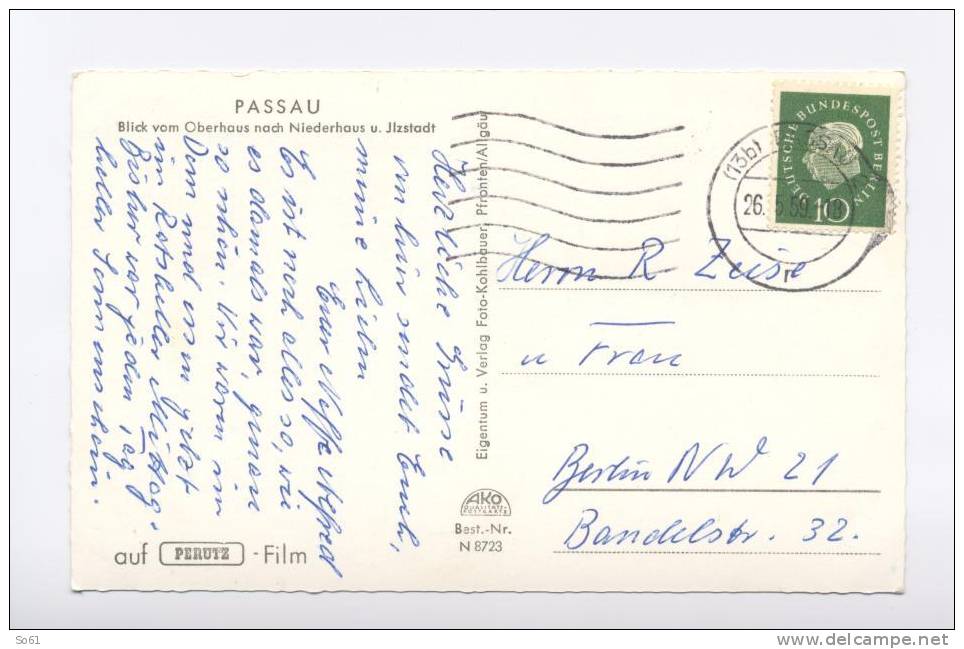 PASSAU
Blick vom Oberhaus nach Niederhaus u. Jlzstadt
Herzliche Grüsse
von hier sendet Euch,
meine Lieben
Euer Neffe
Es ist noch alles so, wie
es damals war, genau
so schön. Wir waren im
Dom und essen jetzt
im Ratskeller Mittag.
Bisher war jeden Tag
heller Sonnenschein.
auf PERUTZ -Film
Eigentum u. Verlag Foto-Kohlbauer, Pfronten/Allgäu
AKO
QUALITÄTS-
POSTKARTE
Best.-Nr.
N 8723
DEUTSCHE BUNDESPOST BERLIN
10
(13b) PASSAU
26. 59
r
Herrn R Zeise
u Frau
Berlin NW 21
Bandelstr. 32.
So61
www.delcampe.net